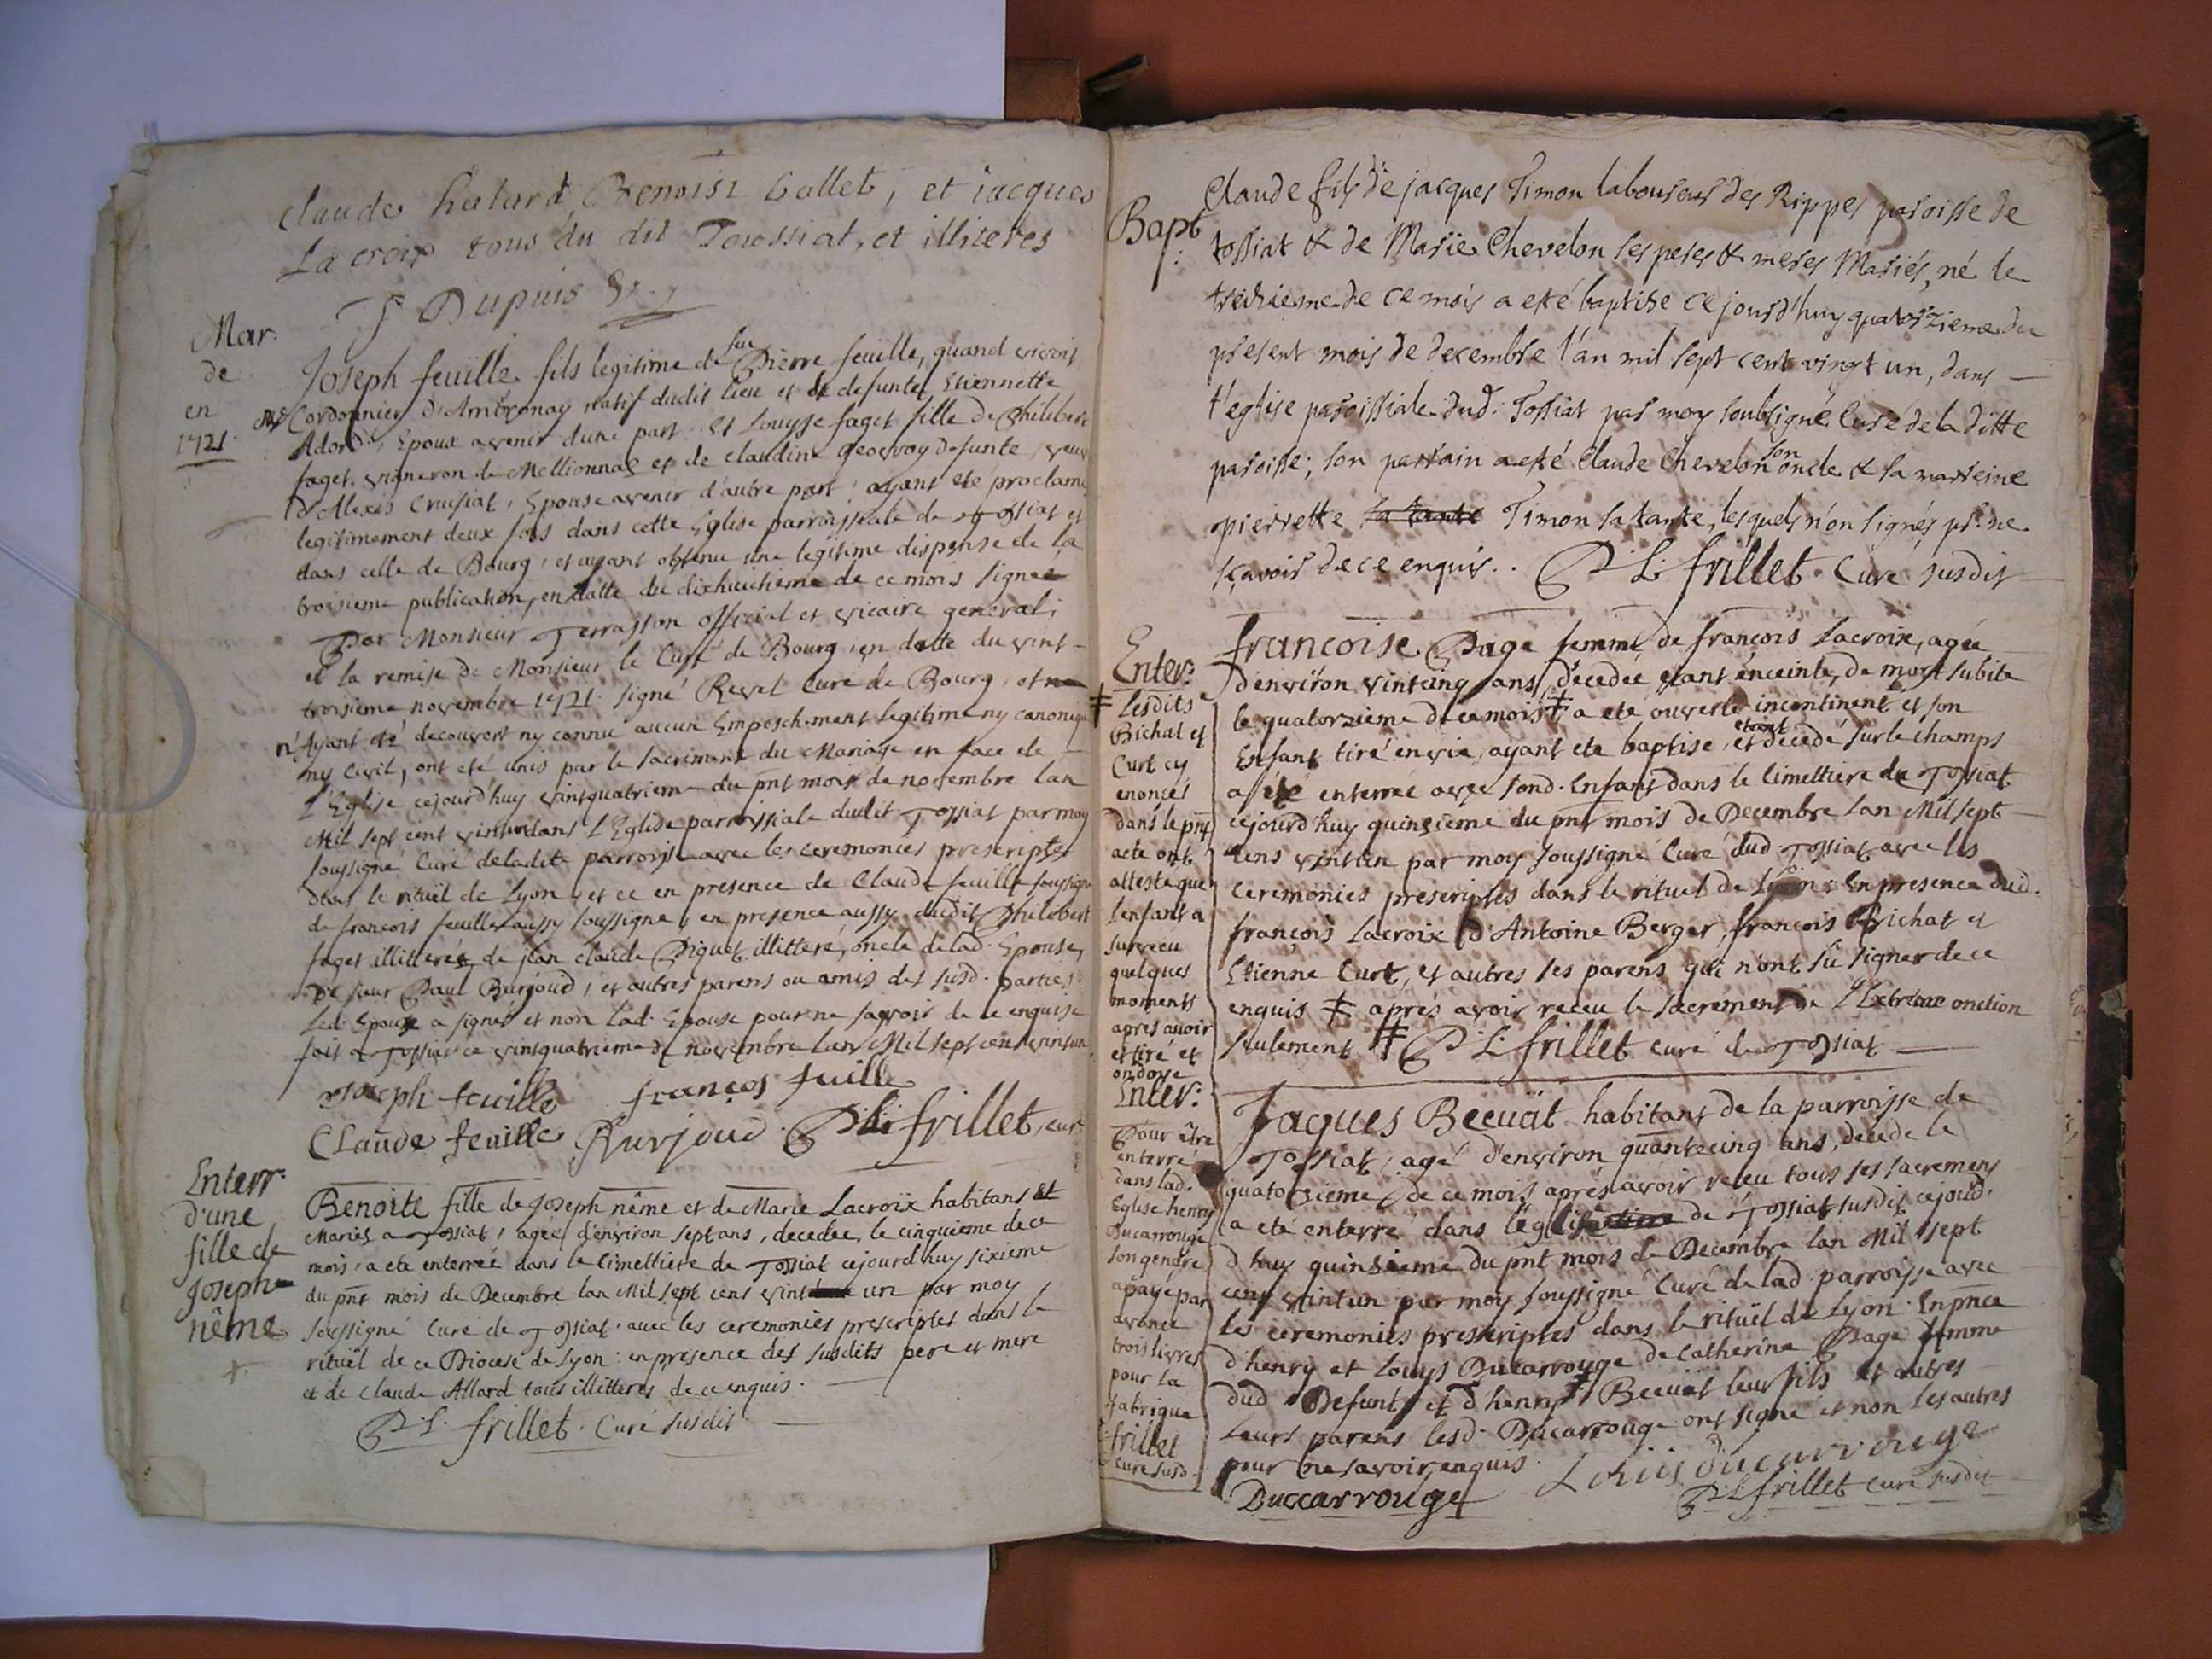 Claude hutard Benoist Callet, et iacques
La croix tous du dit Toussiat, et illiteres
J Dupuis
Mar.
de
en
1721
Joseph feüille fils legitime de feu Pierre feüille, quand vivoit
Cordonnier d'Ambronay natif dudit lieu et de defunte Etiennette
Adord, Epoux avenir d'une part. Et Louyse faget fille de Philibert
faget vigneron de Mellionnas et de Claudine Geovray defunte, veuve
d'Alexis Crusiat, Epouse avenir d'autre part, ayant ete proclamé
legitimement deux fois dans cette Eglise parroissiale de Tossiat et
dans celle de Bourg, et ayant obtenu une legitime dispense de la
troisieme publication, en datte du dixhuictieme de ce mois signée
Par Monsieur Terrasson official et vicaire general;
et la remise de Monsieur le Curé de Bourg, en datte du vint-
troisieme novembre 1721. signé Revel Curé de Bourg, et
n'Ayant été decouvert ny connu aucun Empeschement legitime ny canonique
ny Civil, ont eté unis par le sacrement du Mariage en face de
L'Eglise cejourd'huy vintquatriem du pnt mois de novembre lan
Mil sept cent vintun dans L'Eglise parroissiale dudit Tossiat par moy
soussigné Curé deladite parroisse avec les ceremonies prescriptes
dans le rituël de Lyon, et ce en presence de Claude feuille soussigné
de francois feuille aussy soussigné, en presence aussy dudit Philibert
faget illitteré, de jean claude Piquet illitteré, oncle de lad. Epouse,
De sieur Paul Burjoud, et autres parens ou amis des susd. parties.
Led. Epoux a signé et non lad. Epouse pour ne sçavoir de ce enquise
fait a Tossiat ce vintquatrieme de novembre lan Mil sept cent vintun
Joseph feuille françois fuille
CLaude feuille Burjoud P. L. frillet, curé
Enterr.
d'une
fille de
Joseph
nême
Benoite fille de Joseph nême et de Marie Lacroix habitans et
Mariés a Tossiat, agée d'environ sept ans, decedée le cinquieme de ce
mois, a eté enterreé dans le Cimettiere de Tossiat cejourd'huy sixieme
du pnt mois de Decembre lan Mil sept cens vint un par moy
soussigné Curé de Tossiat, avec les ceremonies prescriptes dans le
rituël de ce Diocese de Lyon: en presence des susdits pere et mere
et de Claude Allard tous illitteres de ce enquis.
P. L. frillet. Curé susdit
Bapt.
Claude fils de jacques Timon laboureur des Rippes paroisse de
tossiat & de Marie Chevelon ses peres & meres Mariés, né le
treizieme de ce mois a eté baptise ce jourd'huy quatorzieme du
present mois de decembre l'an mil sept cent vingt un, dans
l'eglise paroissiale dud. Tossiat par moy soubsigné Curé de la ditte
paroisse; son parrain a eté Claude Chevelon son oncle & sa marreine
pierrette sa tante Timon sa tante, lesquels n'on signés pr. ne
sçavoir de ce enquis.. P. L. frillet. Curé susdit
Enter.
francoise Page femme de françois Lacroix, agée
d'environ vintcinq ans, décedée etant enceinte, de mort subite
le quatorzieme de ce mois ‡ a eté ouverte incontinent et son
Enfant tiré envie, ayant ete baptise, et etant decedé sur le champs
a été enterrée avec sond. Enfant dans le cimettiere de Tossiat
cejourd'huy quinzieme du pnt mois de Decembre lan Mil sept
cens vintun par moy soussigné Curé dud Tossiat avec les
ceremonies prescriptes dans le rituel de Lyon: En presence dud.
françois Lacroix d'Antoine Berger, francois Bichat et
Etienne Curt, et autres ses parens qui n'ont sû signer de ce
enquis ‡ aprés avoir receu le sacrement de L'Extreme onction
seulement ‡ P. L. frillet curé de Tossiat
‡ Lesdits
Bichat et
Curt cy
enoncés
dans le pnt
acte ont
attesté que
lenfant a
survecu
quelques
moments
apres avoir
et tiré et
ondoye
Enter.
Pour être
enterré
dans lad.
Eglise henry
Ducarrouge
son gendre
a payé par
avance
trois livres
pour la
fabrique
frillet
curé susd.
Jaques Becuät habitant de la parroisse de
Tossiat, agé d'environ quantecinq ans, decede le
quatorzieme de ce mois aprés avoir receu tous ses sacremens
a eté enterré dans l'église de Tossiat susdit cejourd'
d'huy quinzieme du pnt mois de Decembre lan Mil sept
cens vintun par moy soussigné Curé de lad. parroisse avec
les ceremonies prescriptes dans le rituël de Lyon. En pnce
d'henry et Louys Ducarrouge de Catherine Page femme
dud Defunt, et d'henry Becuät leur fils et autres
Leurs parens lesd. Ducarrouge ont signé et non les autres
pour ne savoir, enquis
Louis ducarrouge
Duccarrouge P. L. frillet curé susdit